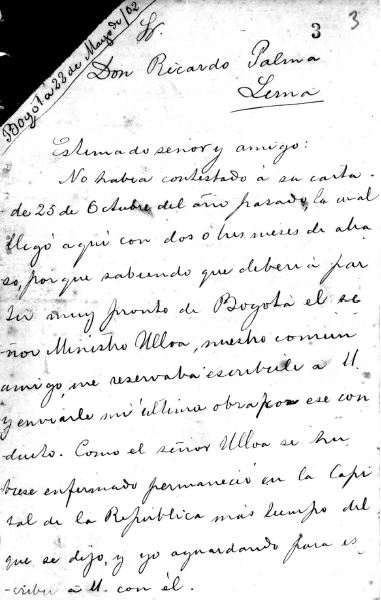 3 3
Bogotá 28 de Mayo de /02
Sr.
Don Ricardo Palma
Lima
Estimado señor y amigo:
No habia contestado á su carta
de 25 de Octubre del año pasado, la cual
llegó aquí con dos ó tres meses de atra
so, porque sabiendo que deberia par
tir muy pronto de Bogotá el se
ñor Ministro Ulloa, nuestro comun
amigo, me reservaba escribirle á U.
y enviarle mi última obra por ese con
ducto. Como el señor Ulloa se hu
biese enfermado permaneció en la Capi
tal de la República más tiempo del
que se dijo, y yo aguardando para es-
-cribir á U. con él.